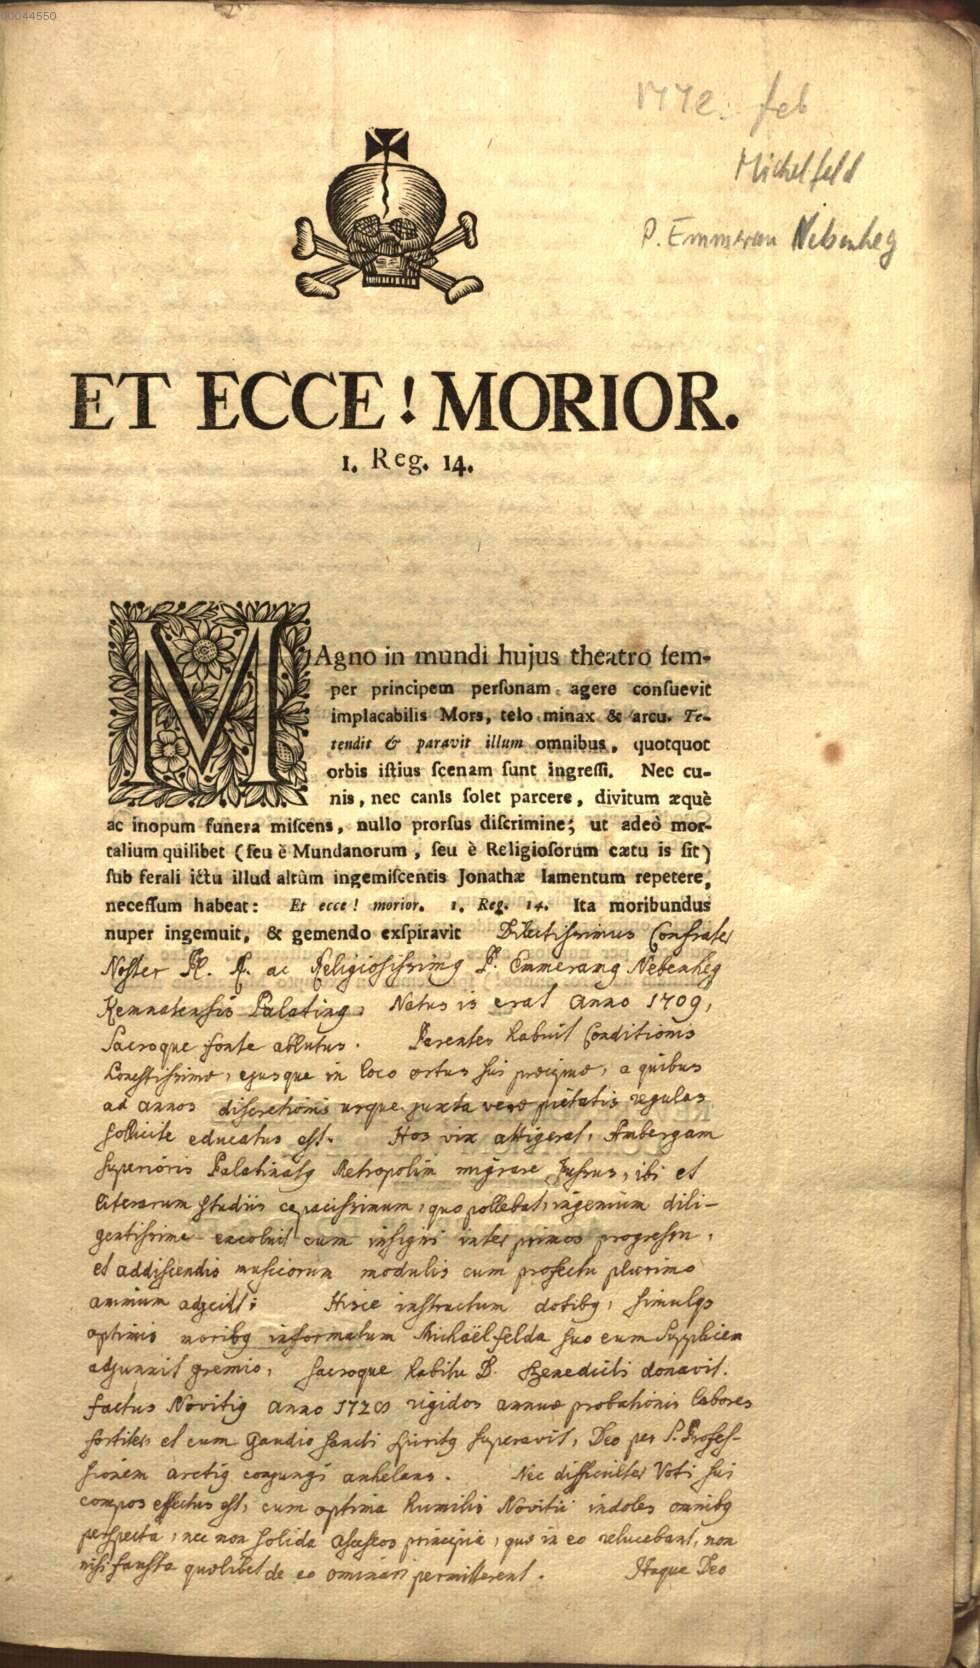 00044550
1772. feb
Michelfeld
P. Emmeran Nebenheg
ET ECCE! MORIOR.
1. Reg. 14.
MAgno in mundi hujus theatro ſem-
per principem perſonam agere conſuevit
implacabilis Mors, telo minax & arcu. Te-
tendit & paravit illum omnibus, quotquot
orbis iſtius ſcenam ſunt ingreſſi. Nec cu-
nis, nec canis ſolet parcere, divitum æquè
ac inopum funera miſcens, nullo prorſus diſcrimine; ut adeò mor-
talium quilibet (ſeu è Mundanorum, ſeu è Religioſorum cætu is ſit)
ſub ferali ictu illud altùm ingemiſcentis Jonathæ lamentum repetere,
neceſſum habeat: Et ecce! morior. 1. Reg. 14. Ita moribundus
nuper ingemuit, & gemendo exſpiravit Dilectissimus Confrater
Noster Pl. R. ac Religiosissimq P. Emmeranq Nebenheg
Kemnatensis Palatinq, Natus is erat anno 1709,
Sacroque fonte ablutus. Parentes habuit Conditionis
honestissimæ, ejusque in loco ortus sui proximo, a quibus
ad annos discretionis usque juxta veræ pietatis regulas
sollicite educatus est. Hos vix attigerat, Ambergam
superioris Palatinatq Metropolim migrare jussus, ibi et
literarum studiis capacissimum, quo pollebat, ingenium dili-
gentissime excoluit cum insigni inter primos progressu,
et addiscendis musicorum modulis cum profectu plurimo
animum adjecit; Hisce instructum dotibq, simulqs
optimis moribq informatum Michaëlfelda suo eum Supplicem
adjunxit gremio, sacroque habitu D. Benedicti donavit.
factus Novitiq anno rigidos annuæ probationis labores
fortiter, et cum gaudio sancti spiritq superavit, Deo per S. Profes-
sionem arctiq conjungi anhelans. Nec difficulter Voti sui
compos effectus est, cum optima humilis Novitii indoles omnibq
perspecta, nec non solida asceseos principia, quæ in eo relucebant, non
nisi fausta quælibet de eo ominari permitterent. Itaque Deo